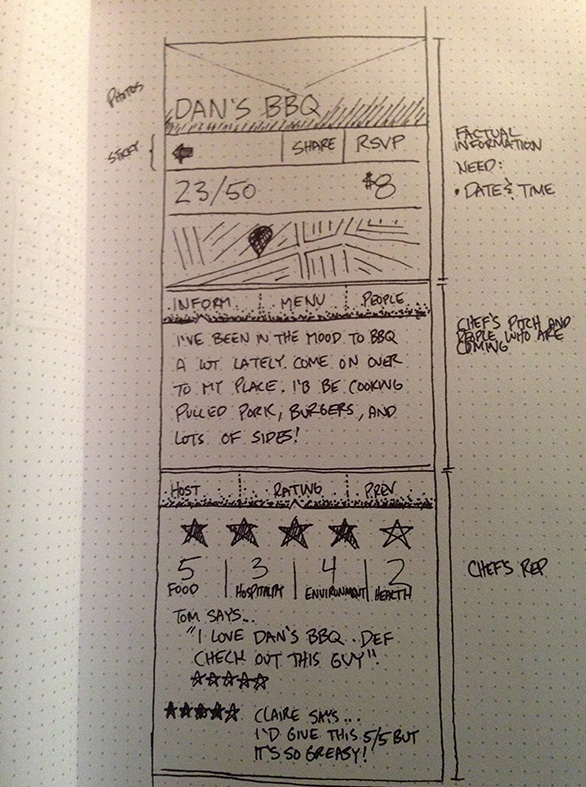 PHOTOS
DAN'S BBQ
STICKY
SHARE
RSVP
23/50
$8
FACTUAL
INFORMATION
NEED:
• DATE & TIME
INFORM
MENU
PEOPLE
I'VE BEEN IN THE MOOD TO BBQ
A LOT LATELY. COME ON OVER
TO MY PLACE. I'B BE COOKING
PULLED PORK, BURGERS, AND
LOTS OF SIDES!
CHEF'S PITCH AND
PEOPLE WHO ARE
COMING
HOST
RATING
PREV
5
FOOD
3
HOSPITALITY
4
ENVIRONMENT
2
HEALTH
CHEF'S REP
TOM SAYS...
"I LOVE DAN'S BBQ.. DEF
CHECK OUT THIS GUY".
CLAIRE SAYS...
I'D GIVE THIS 5/5 BUT
IT'S SO GREASY!